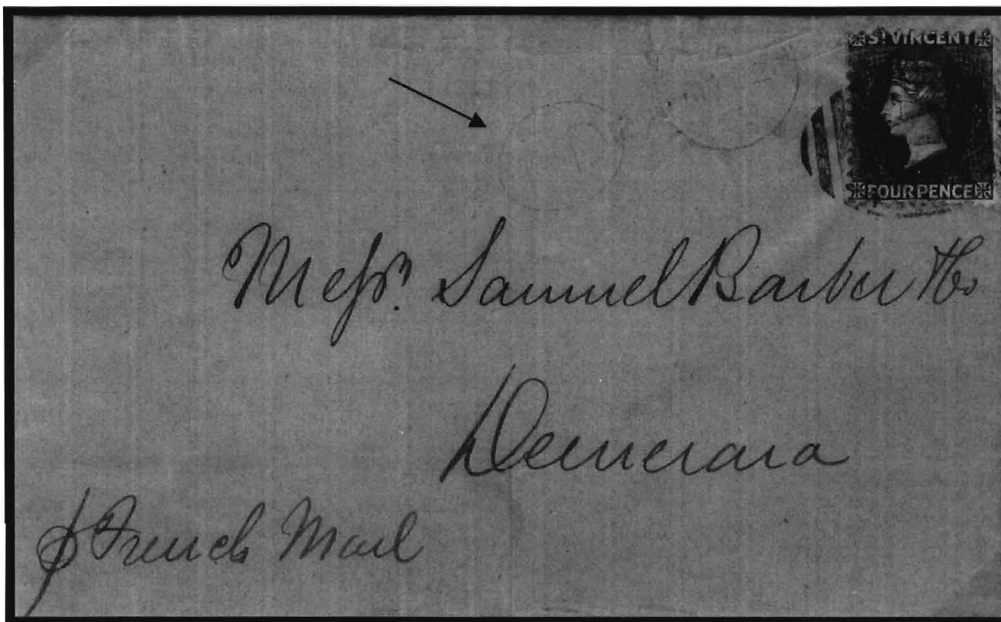 St VINCENT
FOUR PENCE
Messrs. Samuel Barber & Co
Demerara
p French Mail